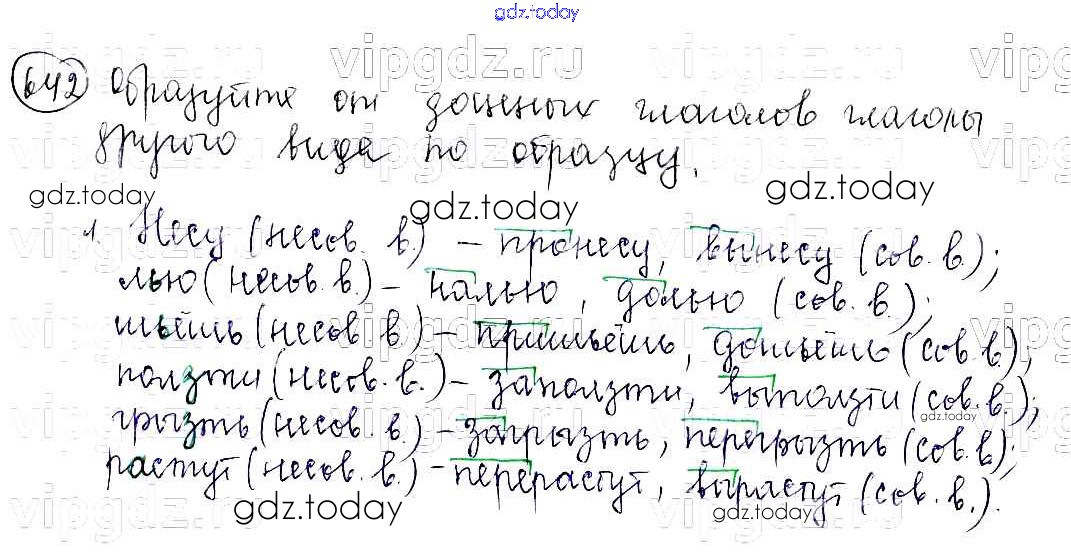 gdz.today
vipgdz.ru vipgdz.ru vipgdz.ru
642 Образуйте от данных глаголов глаголы
другого вида по образцу.
gdz.today gdz.today gdz.today
1. Несу (несов. в.) – пронесу, вынесу (сов. в.);
лью (несов. в.) – налью, долью (сов. в.);
шьёшь (несов. в.) – пришьёшь, дошьёшь (сов. в.);
ползти (несов. в.) – заползти, выползти (сов. в.);
gdz.today
грызть (несов. в.) – загрызть, перегрызть (сов. в.);
растут (несов. в.) – перерастут, вырастут (сов. в.).
gdz.today gdz.today
vipgdz.ru vipgdz.ru vipgdz.ru